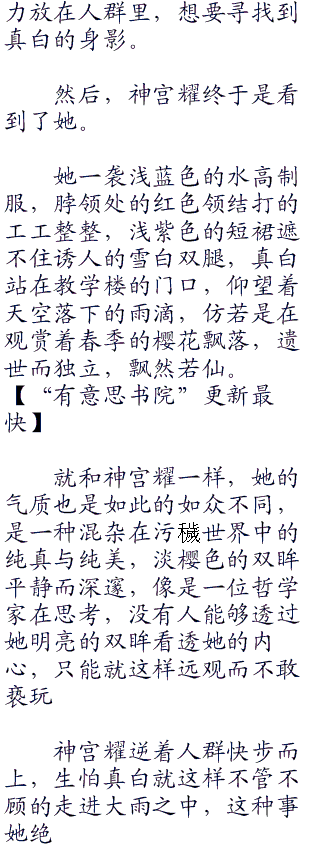 力放在人群里，想要寻找到
真白的身影。
然后，神宫耀终于是看
到了她。
她一袭浅蓝色的水高制
服，脖领处的红色领结打的
工工整整，浅紫色的短裙遮
不住诱人的雪白双腿，真白
站在教学楼的门口，仰望着
天空落下的雨滴，仿若是在
观赏着春季的樱花飘落，遗
世而独立，飘然若仙。
【“有意思书院”更新最
快】
就和神宫耀一样，她的
气质也是如此的如众不同，
是一种混杂在污穢世界中的
纯真与纯美，淡樱色的双眸
平静而深邃，像是一位哲学
家在思考，没有人能够透过
她明亮的双眸看透她的内
心，只能就这样远观而不敢
亵玩
神宫耀逆着人群快步而
上，生怕真白就这样不管不
顾的走进大雨之中，这种事
她绝